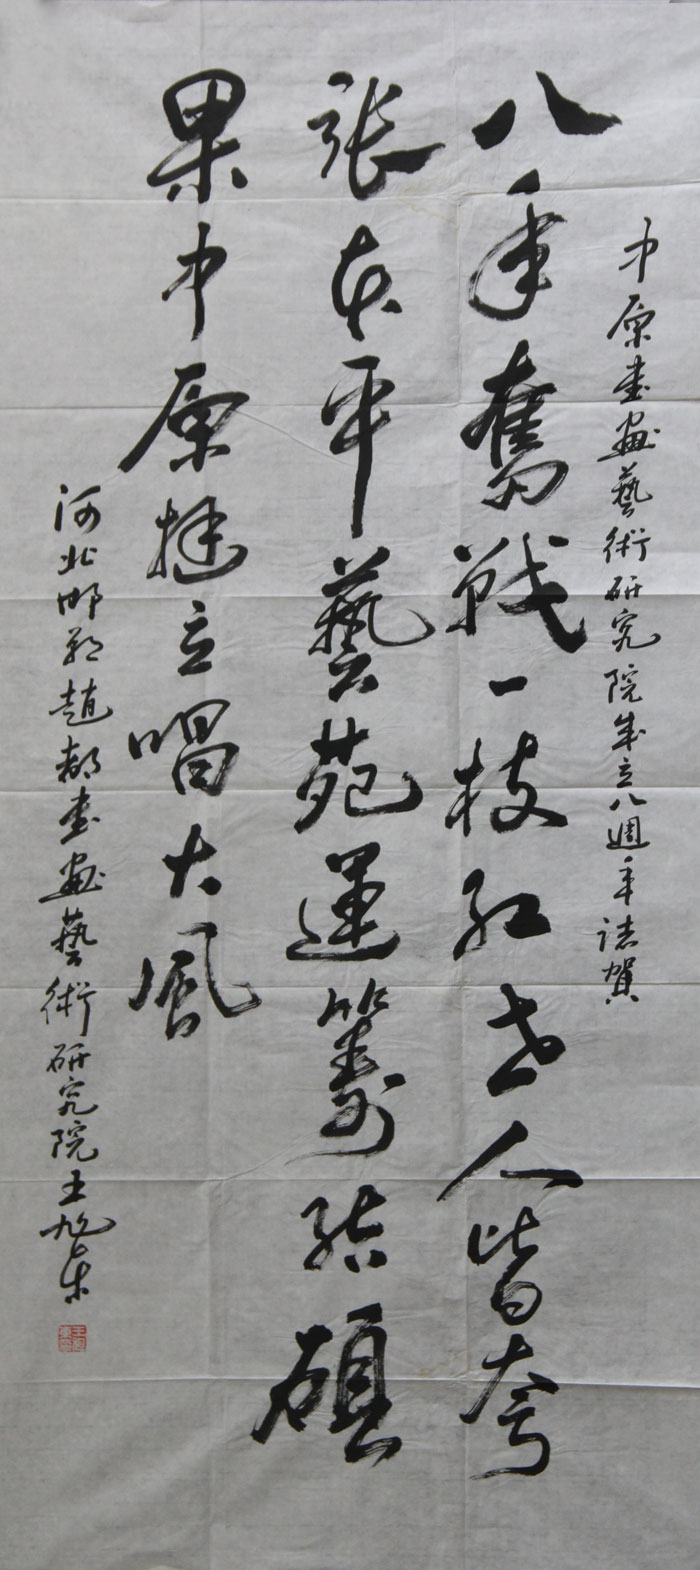 中原書畫藝術研究院成立八週年誌賀
八年奮戰一枝紅世人皆夸
張太平藝苑運籌結碩
果中原挺立唱大風
河北邯鄲趙都書畫藝術研究院王旭東